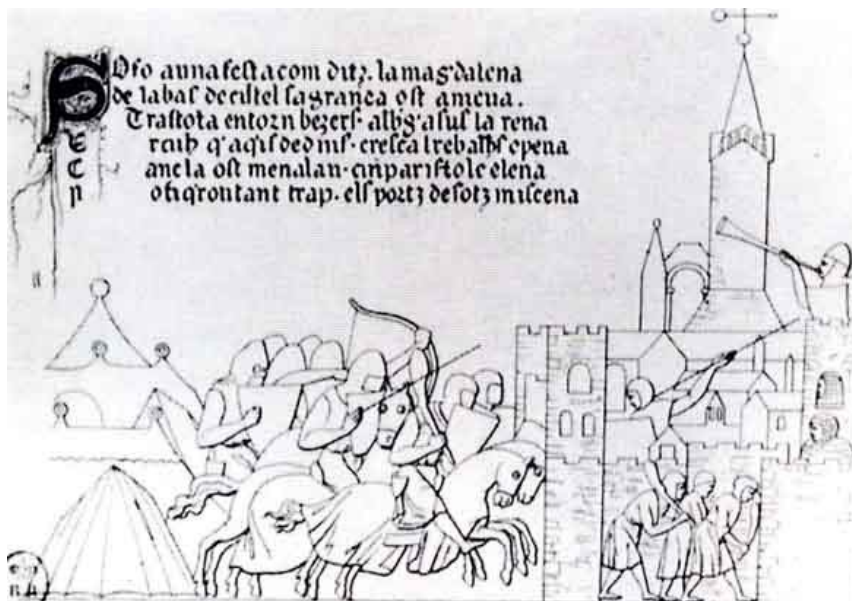 So fo a una festa com ditz. la magdalena
de labas de cistel sa granca ost amena.
Trastota entorn bezers. alberga sus la rena
er cuh q̃ aq̃ls dedins. cresca l trebalhs e pena
anc la ost menalau. cui paris tolc elena
o fiq̃ron tant trap. els portz desotz miscena